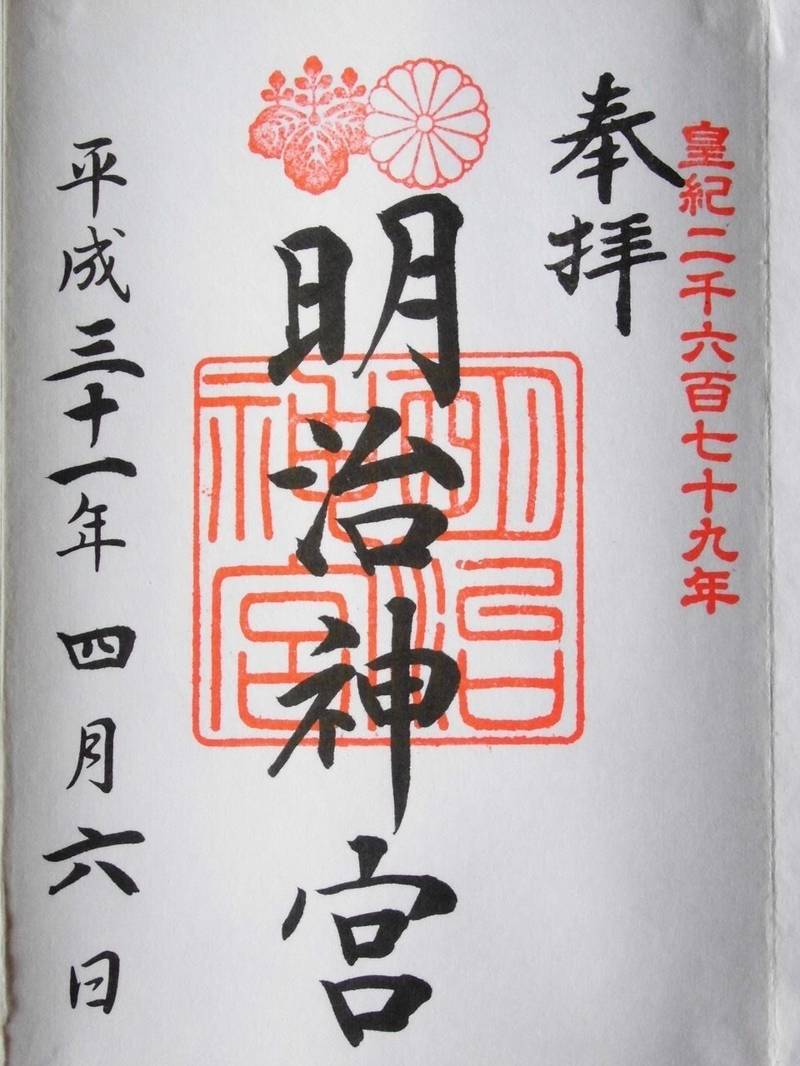 皇紀二千六百七十九年
奉拝
明治神宮
明治
神宮
平成三十一年四月六日